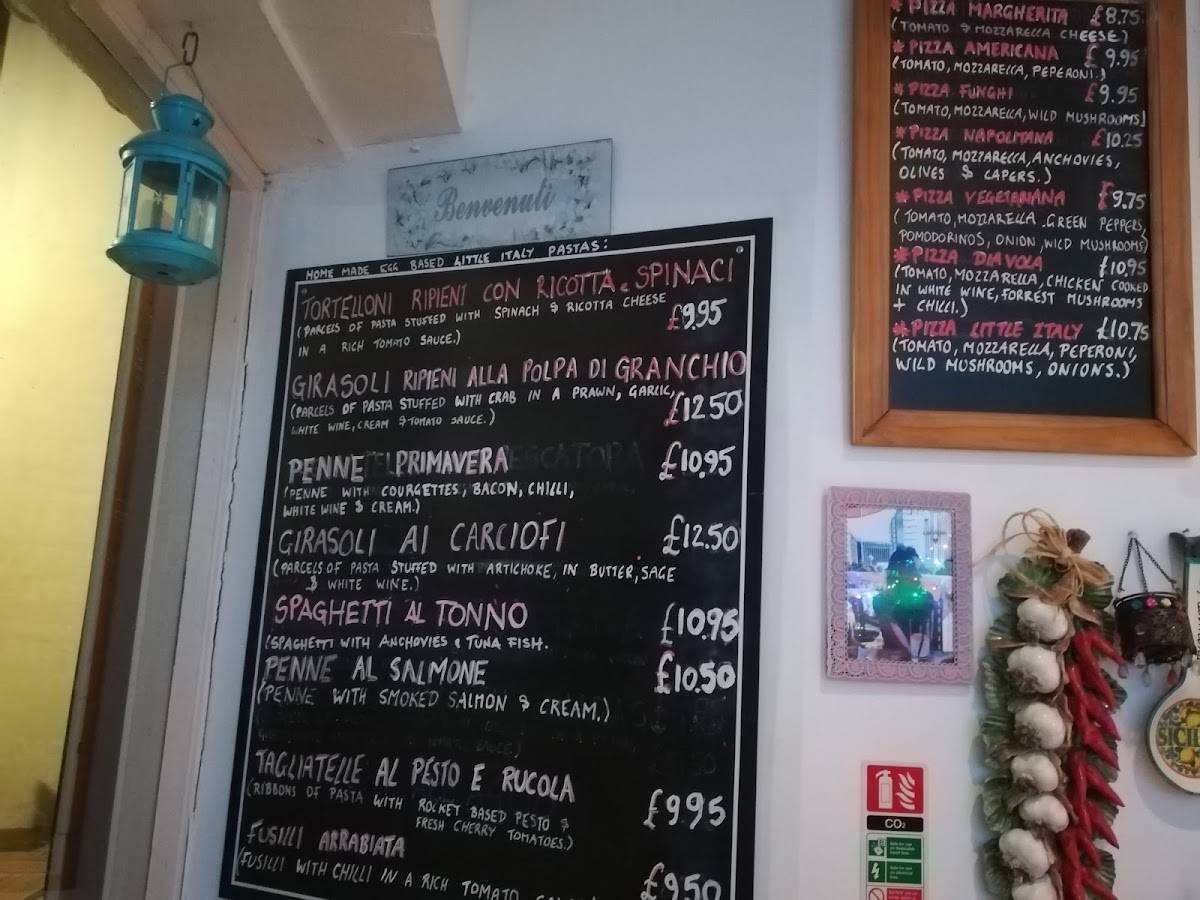 Benvenuti
HOME MADE EGG BASED LITTLE ITALY PASTAS:
TORTELLONI RIPIENI CON RICOTTA e SPINACI
(PARCELS OF PASTA STUFFED WITH SPINACH & RICOTTA CHEESE £9.95
IN A RICH TOMATO SAUCE.)
GIRASOLI RIPIENI ALLA POLPA DI GRANCHIO
(PARCELS OF PASTA STUFFED WITH CRAB IN A PRAWN, GARLIC, £12.50
WHITE WINE, CREAM & TOMATO SAUCE.)
PENNE PRIMAVERA £10.95
(PENNE WITH COURGETTES, BACON, CHILLI,
WHITE WINE & CREAM.)
GIRASOLI AI CARCIOFI £12.50
(PARCELS OF PASTA STUFFED WITH ARTICHOKE, IN BUTTER, SAGE
& WHITE WINE.)
SPAGHETTI AL TONNO £10.95
(SPAGHETTI WITH ANCHOVIES & TUNA FISH.
PENNE AL SALMONE £10.50
(PENNE WITH SMOKED SALMON & CREAM.)
TAGLIATELLE AL PESTO E RUCOLA
(RIBBONS OF PASTA WITH ROCKET BASED PESTO & £9.95
FRESH CHERRY TOMATOES.)
FUSILLI ARRABIATA
(FUSILLI WITH CHILLI IN A RICH TOMATO £9.50
*PIZZA MARGHERITA £8.75
(TOMATO & MOZZARELLA CHEESE)
*PIZZA AMERICANA £9.95
(TOMATO, MOZZARELLA, PEPERONI.)
*PIZZA FUNGHI £9.95
(TOMATO, MOZZARELLA, WILD MUSHROOMS)
*PIZZA NAPOLITANA £10.25
(TOMATO, MOZZARELLA, ANCHOVIES,
OLIVES & CAPERS.)
*PIZZA VEGETARIANA £9.75
(TOMATO, MOZZARELLA. GREEN PEPPERS,
POMODORINOS, ONION, WILD MUSHROOMS)
*PIZZA DIAVOLA £10.95
(TOMATO, MOZZARELLA, CHICKEN COOKED
IN WHITE WINE, FORREST MUSHROOMS
+ CHILLI.)
*PIZZA LITTLE ITALY £10.75
(TOMATO, MOZZARELLA, PEPERONI,
WILD MUSHROOMS, ONIONS.)
CO2